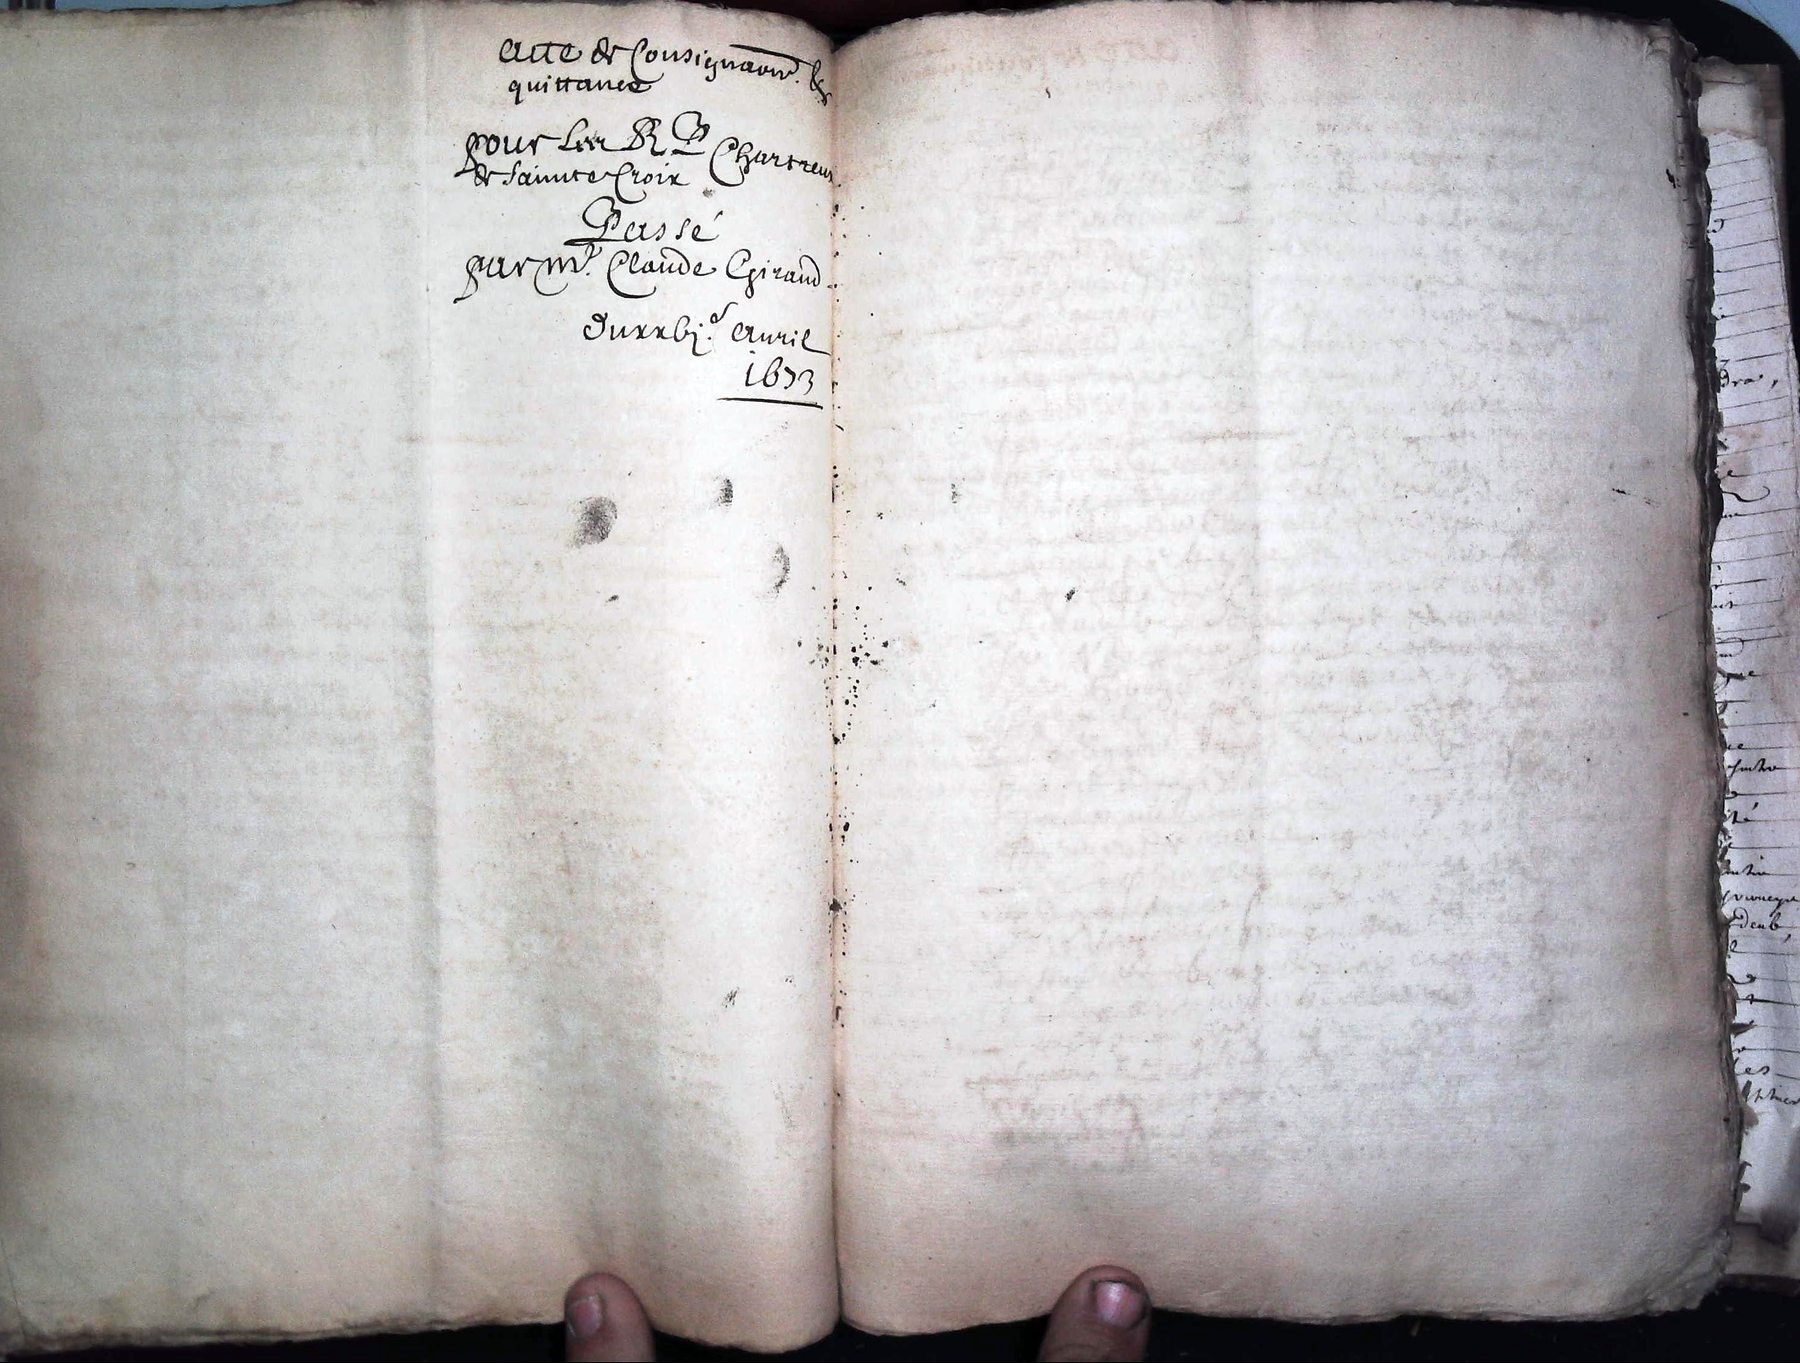 Acte de Consignaõn. &
quittance
pour les RR PP Chartreux
de Sainnte Croix
Passé
par Mr. Claude Giraud.
Du xxbj.e Auril
1673